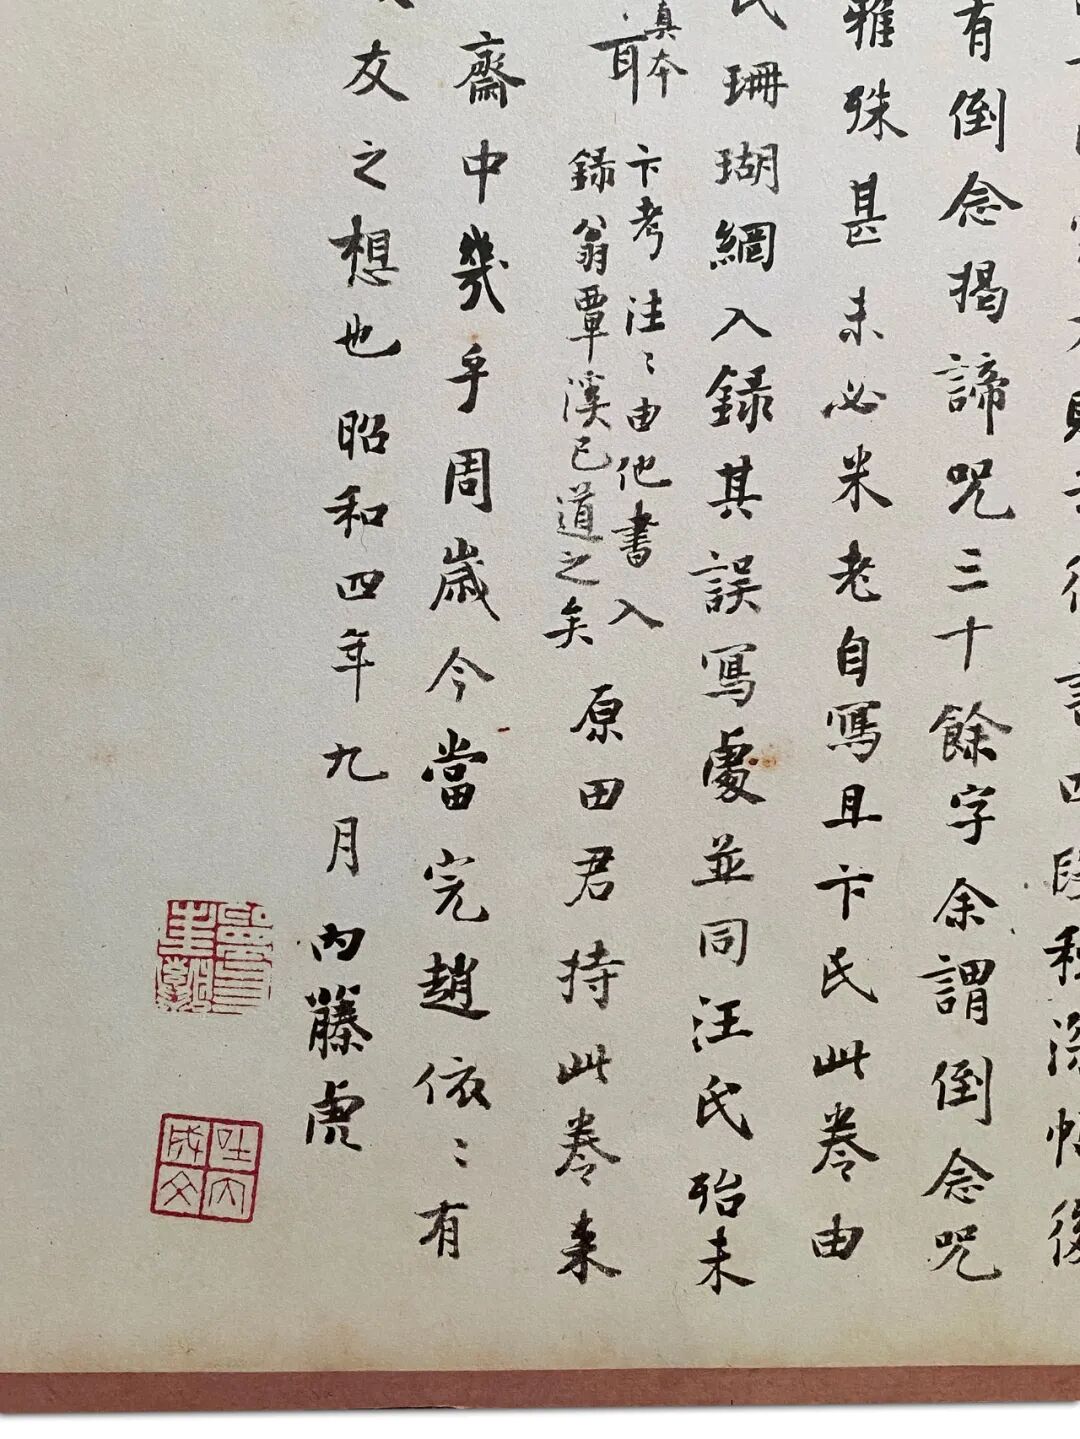 四段種深帖後
有倒念揭諦呪三十餘字余謂倒念呪
雅殊甚未必米老自寫且卞氏此卷由
氏珊瑚網入録其誤寫處並同汪氏殆未
真本
耳
卞考注〻由他書入
録翁覃溪已道之矣
原田君持此卷来
齋中幾乎周歳今當完趙依〻有
友之想也昭和四年九月内藤虎
吐內成文